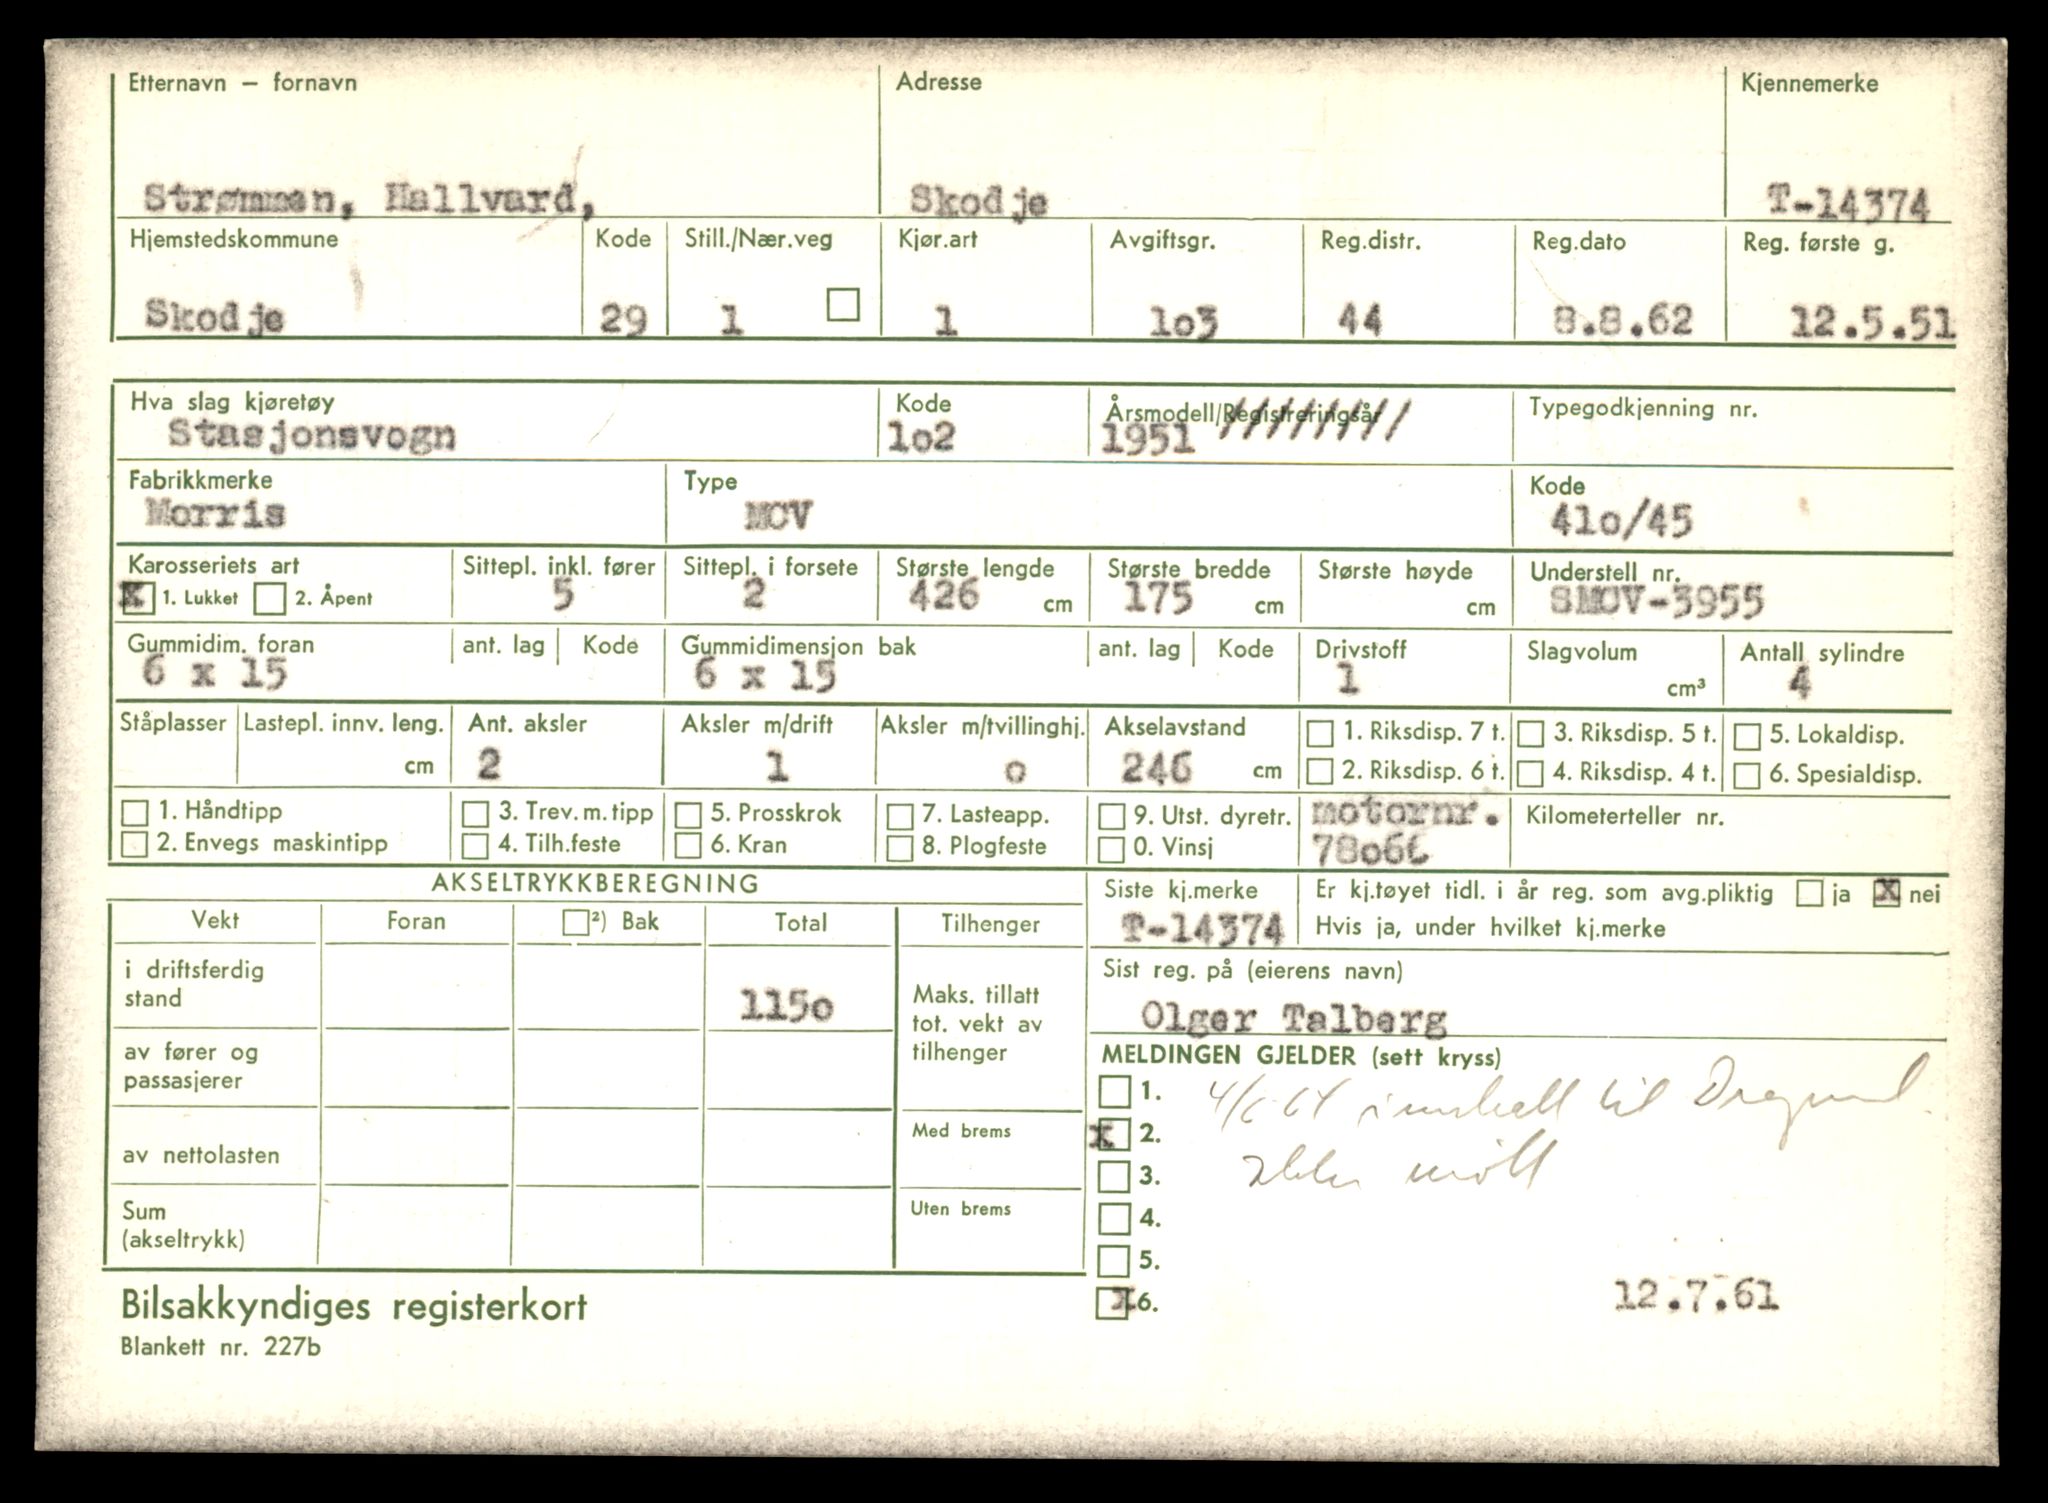 Etternavn – fornavn Adresse Kjennemerke
Strømmen, Hallvard, Skodje T-14374
Hjemstedskommune Kode Still./Nær.veg Kjør.art Avgiftsgr. Reg.distr. Reg.dato Reg. første g.
Skodje 29 1 1 1o3 44 8.8.62 12.5.51
Hva slag kjøretøy Kode Årsmodell/Registreringsår Typegodkjenning nr.
Stasjonsvogn 1o2 1951 ////////
Fabrikkmerke Type Kode
Morris MCV 41o/45
Karosseriets art Sittepl. inkl. fører Sittepl. i forsete Største lengde Største bredde Største høyde Understell nr.
X 1. Lukket 2. Åpent 5 2 426 cm 175 cm cm SMCV-5955
Gummidim. foran ant. lag Kode Gummidimensjon bak ant. lag Kode Drivstoff Slagvolum Antall sylindre
6 x 15 6 x 15 1 cm³ 4
Ståplasser Lastepl. innv. leng. Ant. aksler Aksler m/drift Aksler m/tvillinghj. Akselavstand 1. Riksdisp. 7 t. 3. Riksdisp. 5 t. 5. Lokaldisp.
cm 2 1 o 246 cm 2. Riksdisp. 6 t. 4. Riksdisp. 4 t. 6. Spesialdisp.
1. Håndtipp 3. Trev. m. tipp 5. Prosskrok 7. Lasteapp. 9. Utst. dyretr. motornr. Kilometerteller nr.
2. Envegs maskintipp 4. Tilh.feste 6. Kran 8. Plogfeste 0. Vinsj 78o66
AKSELTRYKKBEREGNING
Vekt Foran ²) Bak Total Tilhenger
i driftsferdig
stand 115o
Maks. tillatt
tot. vekt av
tilhenger
av fører og
passasjerer
av nettolasten
Med brems
Sum
(akseltrykk)
Uten brems
Siste kj.merke Er kj.tøyet tidl. i år reg. som avg.pliktig ja X nei
T-14374 Hvis ja, under hvilket kj.merke
Sist reg. på (eierens navn)
Olger Talberg
MELDINGEN GJELDER (sett kryss)
1. 4/6 64 innkalt til
x 2.
ikke møtt
3.
4.
5.
x 6. 12.7.61
Bilsakkyndiges registerkort
Blankett nr. 227b